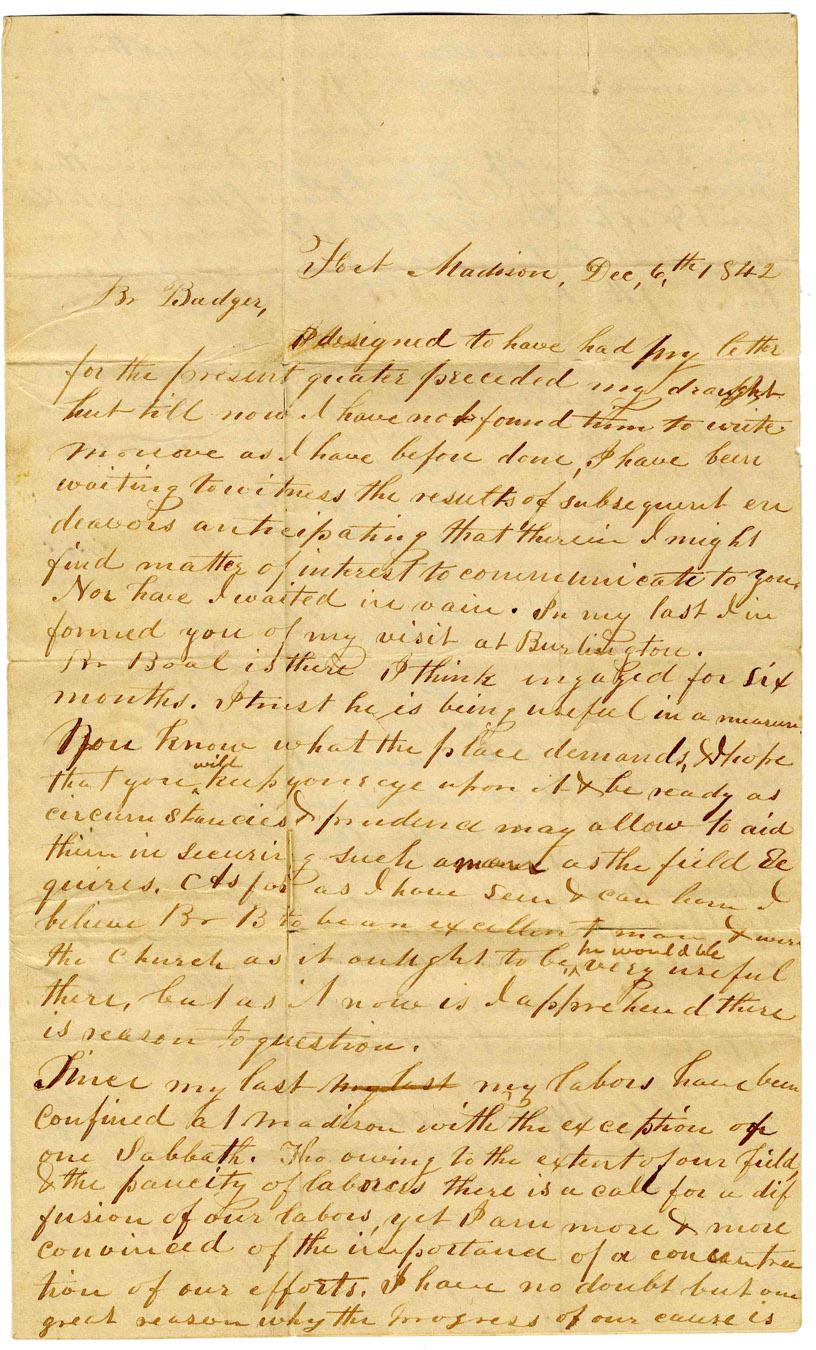 Fort Madison, Dec, 6,th 1842
Br Badger,
I designed to have had my letter
for the present quater preceded my draught
but till now I have not found time to write
moreove as I have before done, I have been
waiting to witness the results of subsequent en
deavors anticipating that therein I might
find matter of interest to communicate to you.
Nor have I waited in vain. In my last I in
formed you of my visit at Burlington.
Br Boal is there I think engaged for six
months. I trust he is being useful in a measure.
You know what the place demands, & I hope
that you will keep your eye upon it & be ready as
circumstancies & prudence may allow to aid
them in securing such a man as the field Re
quires. As far as I have seen & can learn I
believe Br B to be an excellent man & were
the church as it outght to be, he would be very useful
there, but as it now is I apprehend there
is reason to question.
Since my last my last my labors have been
confined at Madison with the exception of
one Sabbath. Tho owing to the extent of our field,
& the paucity of laborers there is a call for a dif
fusion of our labors, yet I am more & more
convinced of the importance of a concentra
tion of our efforts. I have no doubt but one
great reason why the progress of our cause is